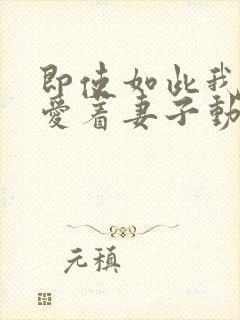 即使如此我
爱着妻子動
元稹